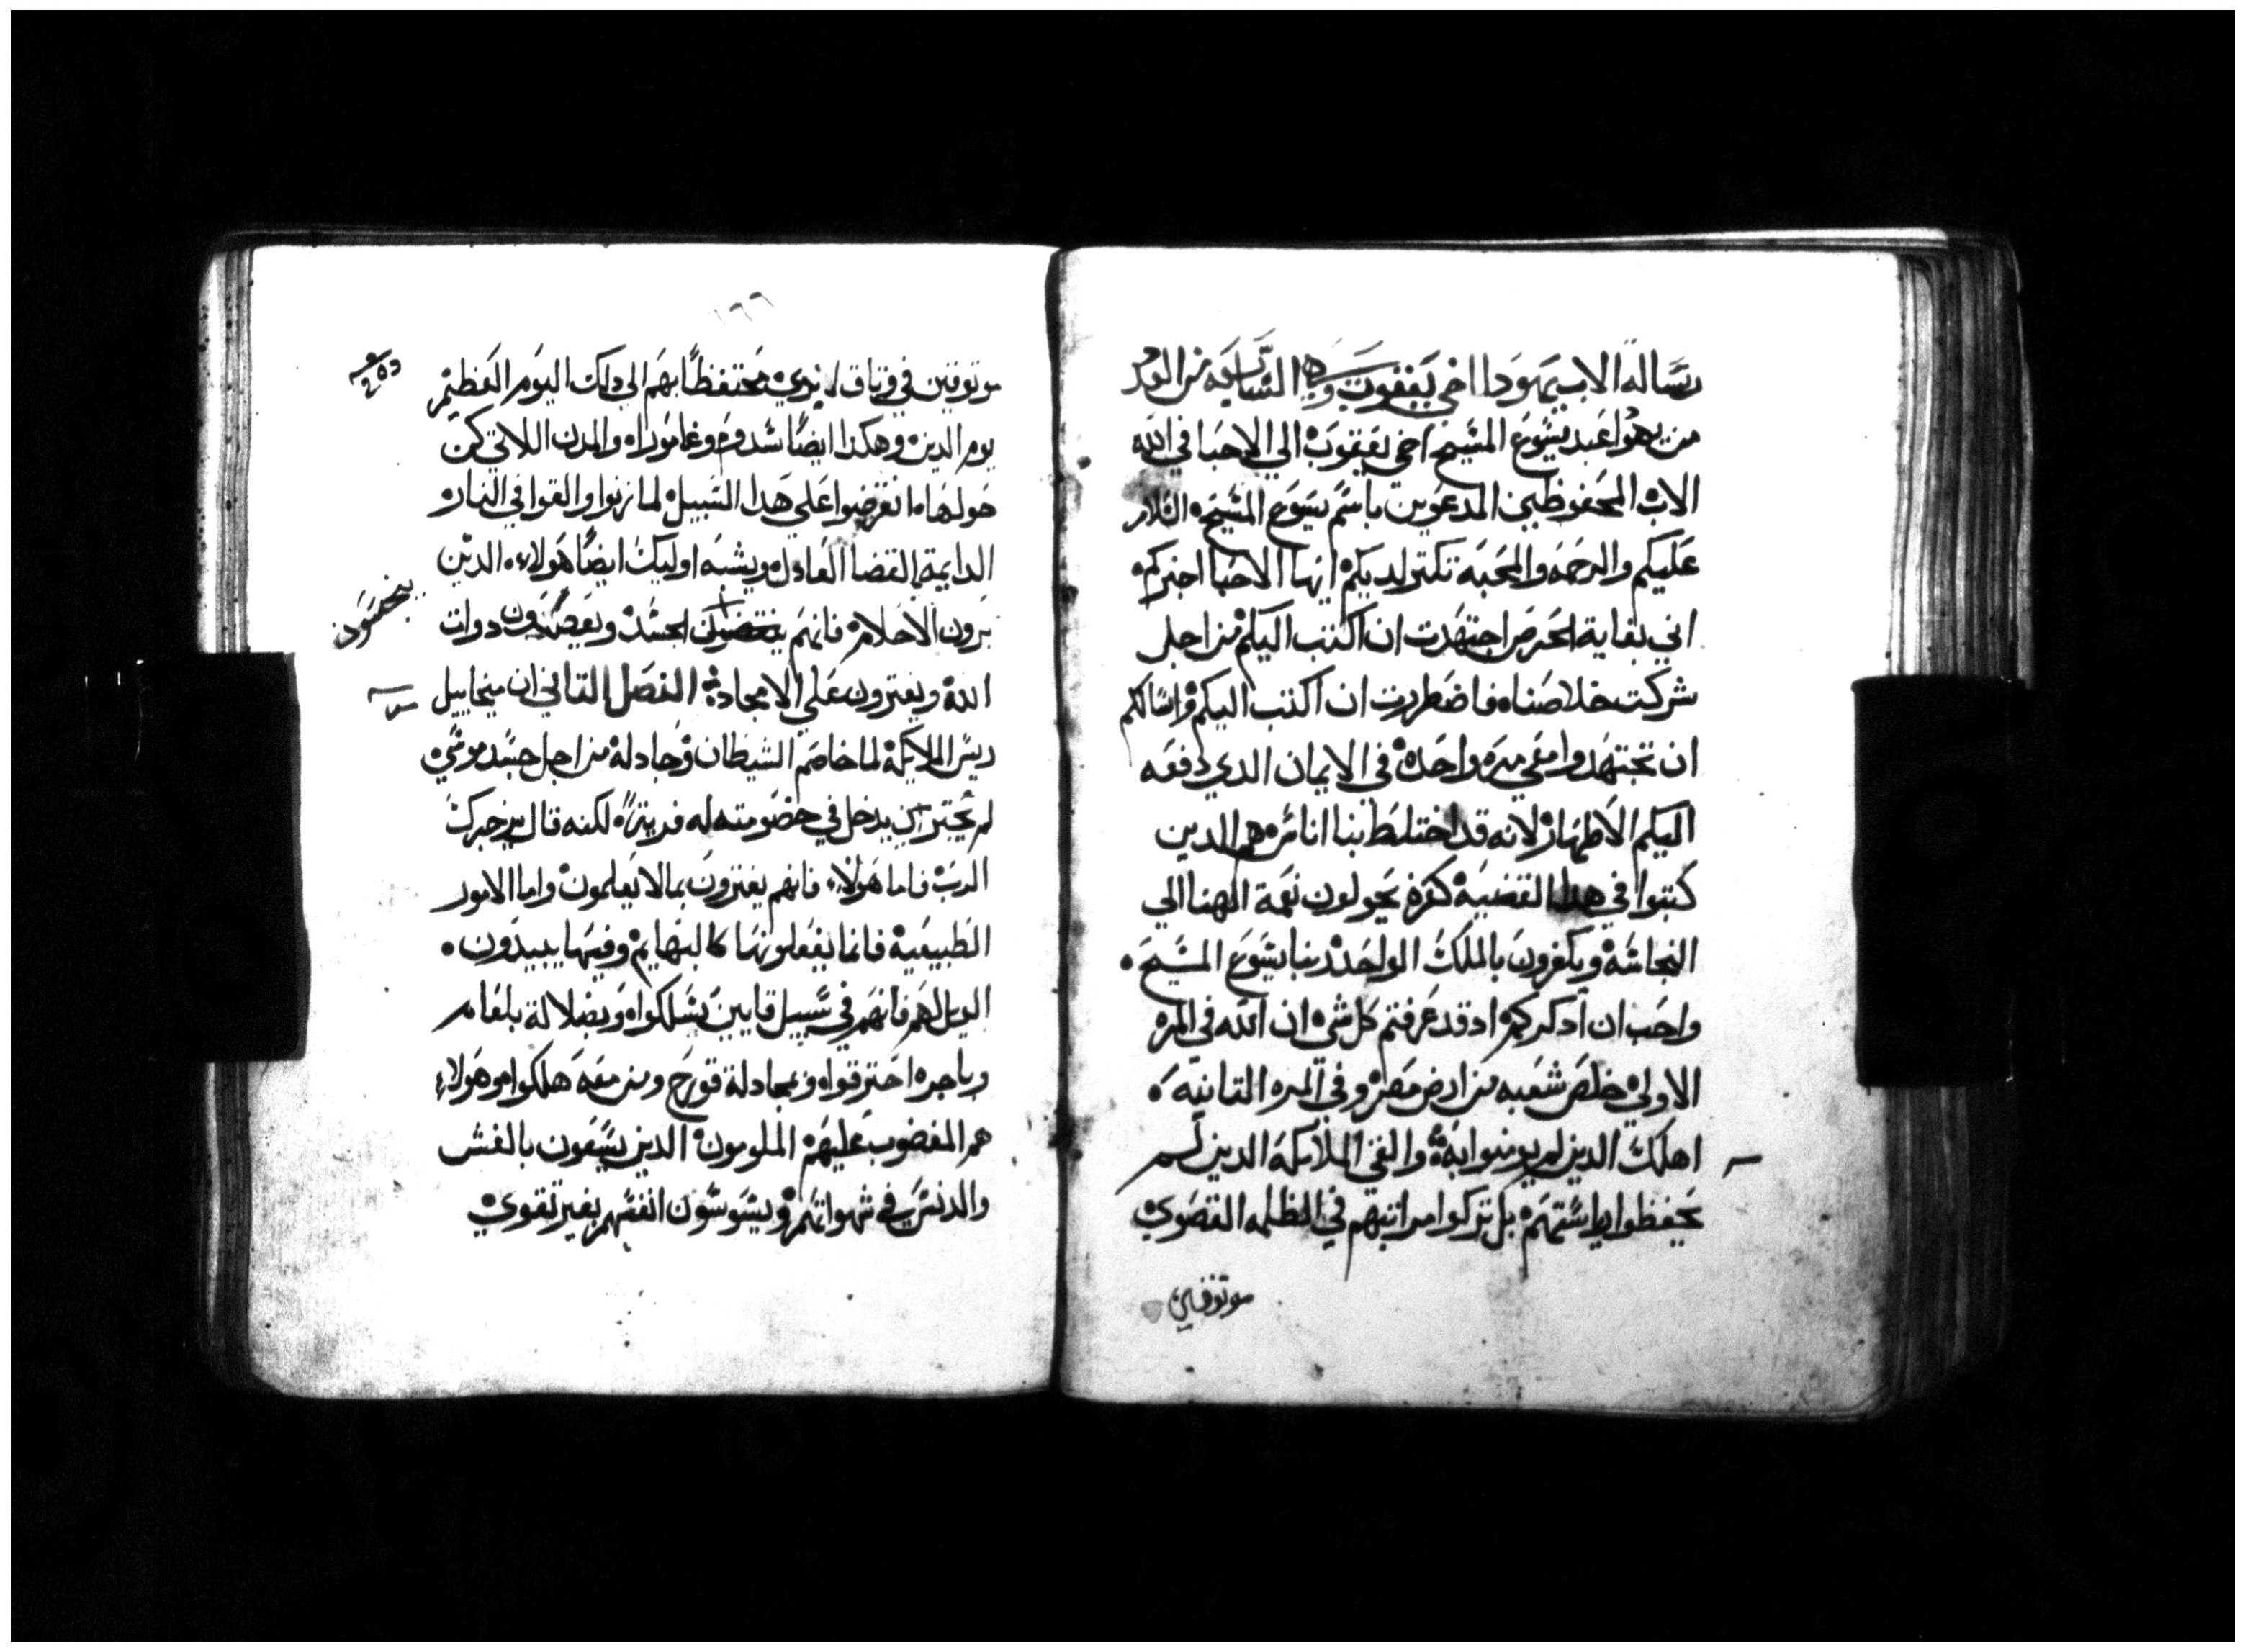 رسالة الاب يهودا اخي يعقوب وهي السابعه من العدد
من يهودا عبد يسوع المسيح اخي يعقوب الي الاحبا في الله
الاب المحفوظين المدعوين باسم يسوع المسيح السلام
عليكم والرحمه والمحبه تكتر لديكم ايها الاحبا اخبركم
اني بغاية الحرص اجتهدت ان اكتب اليكم من اجل
شركت خلاصنا فاضطررت ان اكتب اليكم واسالكم
ان تجتهدوا معي مره واحدة في الايمان الدي دفعه
اليكم الاطهار لانه قد اختلط بنا اناس هم الدين
كتبوا في هدا القضية كفره يحولون نعمة الهنا الي
النجاسه ويكفرون بالملك الواحد ربنا يسوع المسيح
واحب ان ادكركم اد قد عرفتم كل شي ان الله في المره
الاولي خلص شعبه من ارض مصر وفي المره التانيه
اهلك الدين لم يومنوا به والقي الملايكة الدين لم
يحفظوا رياستهم بل تركوا مراتبهم في الظلمه القصوي
موتوقين
١٦٦
موتوقين في وتاق ابدي محتفظا بهم الي دلك اليوم العظيم
يوم الدين وهكدا ايضا سدوم وغاموراه والمدن اللاتي كن
حولها انقرضوا علي هدا السبيل لما زنوا والقوا في النار
الدايمة بالقضا العادل ويشبه اوليك ايضا هولاء الدين
يرون الاحلام فانهم ينجسون الجسد ويعصون دوات
الله ويفترون علي الامجاد الفصل التاني ان ميخاييل
ريس الملايكة لما خاصم الشيطان وجادله من اجل جسد موسي
لم يجتر ان يدخل في خصومته له فرية لكنه قال يزجرك
الرب فاما هولاء فانهم يفترون بما لا يعلمون واما الامور
الطبيعية فانما يفعلونها كالبهايم وفيها يبيدون
الويل لهم فانهم في سبيل قايين سلكوا وبضلالة بلعام
وباجره احترقوا وبمجادلة قورح ومن معه هلكوا وهولاء
هم المغضوب عليهم الملومون الدين يسعون بالغش
والدنس في شهواتهم ويسوسون انفسهم بغير تقوي